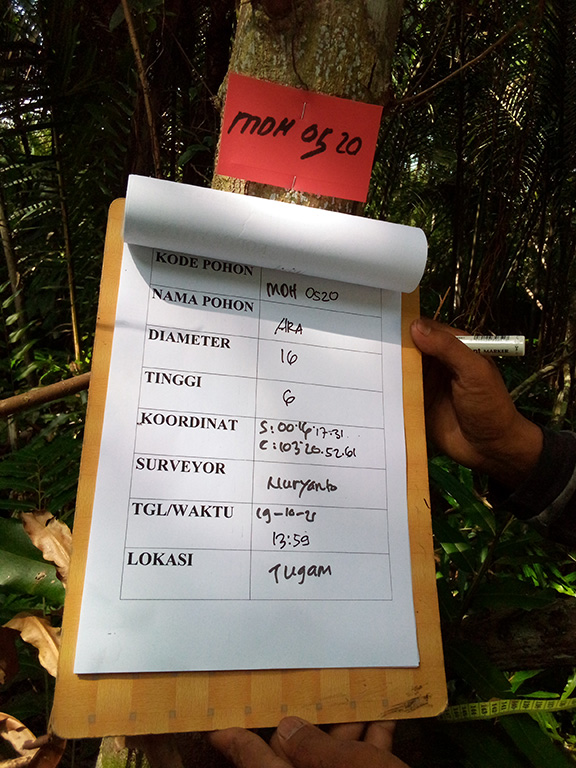 MDH 0520
KODE POHON MDH 0520
NAMA POHON ARA
DIAMETER 16
TINGGI 6
KOORDINAT S:00.16.17.31
E:103.20.52.61
SURVEYOR Nuryanto
TGL/WAKTU 19-10-21
13:59
LOKASI Tugam
MARKER